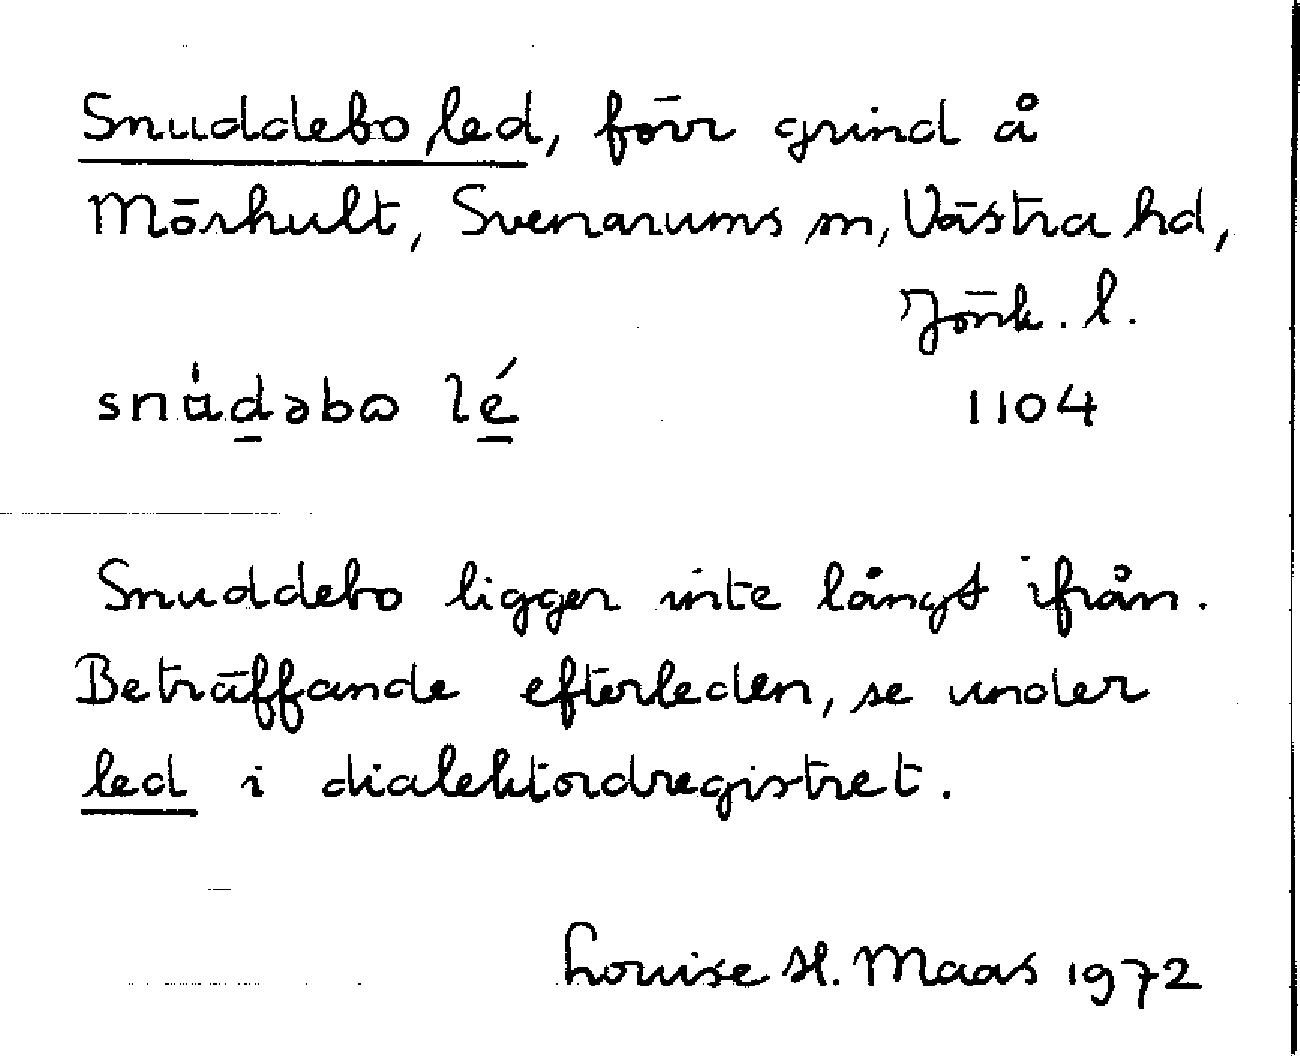 Snuddebo led, förr grind å
Mörhult, Svenarums sn, Västra hd,
Jönk. l.
snu̇d̲əbɷ lé̲ 1104
Snuddebo ligger inte långt ifrån.
Beträffande efterleden, se under
led i dialektordregistret.
Louise H. Maas 1972